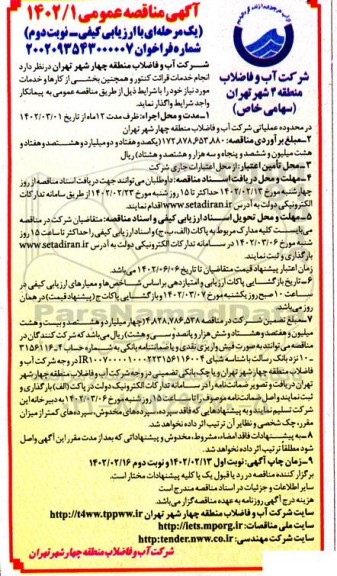 آگهی مناقصه عمومی ۱۴۰۲/۱
(یک مرحله‌ای با ارزیابی کیفی - نوبت دوم)
شماره فراخوان ۲۰۰۲۰۹۳۵۶۳۰۰۰۰۰۷
شرکت آب و فاضلاب
منطقه ۴ شهر تهران
(سهامی خاص)
شرکت آب و فاضلاب منطقه چهار شهر تهران در نظر دارد
انجام خدمات قرائت کنتور و همچنین بخشی از کارها و خدمات
مورد نیاز خود را با شرایط ذیل از طریق مناقصه عمومی به پیمانکار
واجد شرایط واگذار نماید.
۱- مدت و محل اجرا: ظرف مدت ۱۲ ماه از تاریخ ۱۴۰۲/۰۳/۰۱
در محدوده عملیاتی شرکت آب و فاضلاب منطقه چهار شهر تهران
۲- مبلغ برآوردی مناقصه: ۱۷۲٫۸۷۸٫۶۵۳٫۸۸۰ (یکصد و هفتاد و دو میلیارد و هشتصد و هفتاد و
هشت میلیون و ششصد و پنجاه و سه هزار و هشتصد و هشتاد) ریال
۳- محل تأمین اعتبار: از محل اعتبارات جاری شرکت
۴- مهلت و محل دریافت اسناد مناقصه: داوطلبان می‌توانند جهت دریافت اسناد مناقصه از روز
چهارشنبه مورخ ۱۴۰۲/۰۲/۱۳ حداکثر تا ۱۵ روز شنبه مورخ ۱۴۰۲/۰۲/۲۳ از طریق سامانه تدارکات
الکترونیکی دولت به آدرس www.setadiran.ir اقدام نمایند.
۵- مهلت و محل تحویل اسناد ارزیابی کیفی و اسناد مناقصه: متقاضیان شرکت در مناقصه
می‌بایست کلیه مدارک مربوط به پاکات (الف، ب، ج) و اسناد ارزیابی کیفی را حداکثر تا ساعت ۱۵ روز
شنبه مورخ ۱۴۰۲/۰۳/۰۶ در سامانه تدارکات الکترونیکی دولت به آدرس www.setadiran.ir
بارگذاری و ثبت نمایند.
زمان اعتبار پیشنهاد قیمت متقاضیان تا تاریخ ۱۴۰۲/۰۶/۰۶ می‌باشد.
۶- تاریخ بازگشایی پاکات ارزیابی و امتیازدهی براساس شاخص‌ها و معیارهای ارزیابی کیفی در
ساعت ۱۰ صبح روز یکشنبه مورخ ۱۴۰۲/۰۳/۰۷ و بازگشایی پاکات ج (پیشنهاد قیمت) در همان
روز می‌باشد.
۷- مبلغ تضمین شرکت در مناقصه ۴٫۸۲۸٫۷۸۶٫۵۳۸ (چهار میلیارد و هشتصد و بیست و هشت
میلیون و هفتصد و هشتاد و شش هزار و پانصد و سی و هشت) ریال می‌باشد که شرکت کنندگان در
مناقصه می‌توانند به صورت فیش واریزی نقدی و یا ضمانتنامه بانکی به شماره حساب
نزد بانک رسالت با شناسه شبای در وجه شرکت آب و
فاضلاب منطقه چهار شهر تهران و یا چک بانکی تضمینی در وجه شرکت آب و فاضلاب منطقه چهار شهر
تهران دریافت و تصویر ضمانتنامه را در سامانه تدارکات الکترونیک دولت در پاکت (الف) بارگذاری و
ثبت نمایند و اصل ضمانتنامه مزبور را تا ساعت ۱۵ روز شنبه مورخ ۱۴۰۲/۰۳/۰۶ به دبیرخانه این
شرکت تسلیم نمایند و به پیشنهادهایی که فاقد سپرده، سپرده‌های مخدوش، سپرده‌های کمتر از میزان
مقرر، چک شخصی و نظایر آن ترتیب اثر داده نخواهد شد.
۸- به پیشنهادات فاقد امضاء، مشروط، مخدوش و پیشنهاداتی که بعد از مدت مقرر این آگهی واصل
شود مطلقاً ترتیب اثر داده نخواهد شد.
۹- زمان چاپ آگهی: نوبت اول ۱۴۰۲/۰۲/۱۳ و نوبت دوم ۱۴۰۲/۰۲/۱۶
برگزار کننده مناقصه در رد یا قبول یک یا کلیه پیشنهادات مختار است.
سایر اطلاعات و جزئیات در اسناد مناقصه مندرج است
هزینه درج آگهی روزنامه به عهده مناقصه گزار می‌باشد.
سایت شرکت آب و فاضلاب منطقه چهار شهر تهران http://t4ww.tppww.ir
سایت ملی مناقصات: http://iets.mporg.ir
سایت شرکت مهندسی: http:tender.nww.co.ir
شرکت آب و فاضلاب منطقه چهار شهر تهران